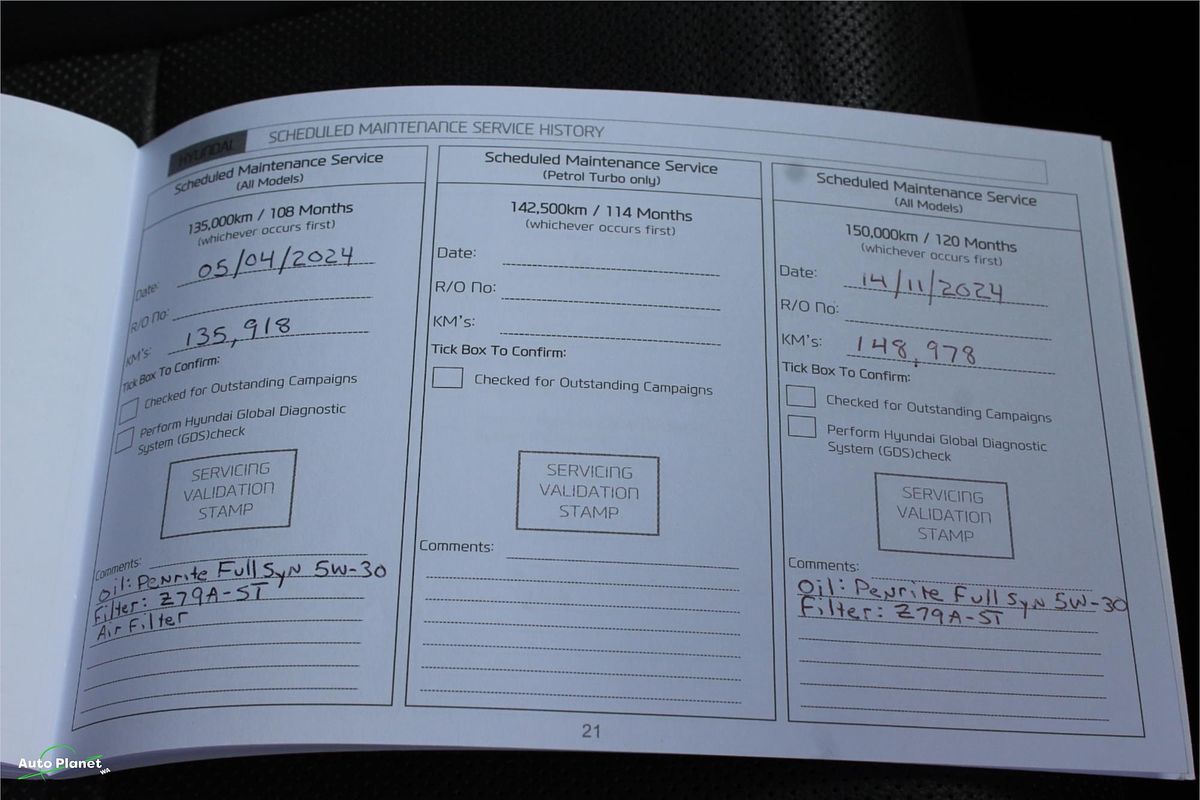 HYUNDAI
SCHEDULED MAINTENANCE SERVICE HISTORY
Scheduled Maintenance Service
(All Models)
135,000km / 108 Months
(whichever occurs first)
Date: 05/04/2024
R/O No:
KM's: 135,918
Tick Box To Confirm:
Checked for Outstanding Campaigns
Perform Hyundai Global Diagnostic
System (GDS)check
SERVICING
VALIDATION
STAMP
Comments:
Oil: Penrite Full Syn 5W-30
Filter: Z79A-ST
Air Filter
Scheduled Maintenance Service
(Petrol Turbo only)
142,500km / 114 Months
(whichever occurs first)
Date:
R/O No:
KM's:
Tick Box To Confirm:
Checked for Outstanding Campaigns
SERVICING
VALIDATION
STAMP
Comments:
Scheduled Maintenance Service
(All Models)
150,000km / 120 Months
(whichever occurs first)
Date: 14/11/2024
R/O No:
KM's: 148,978
Tick Box To Confirm:
Checked for Outstanding Campaigns
Perform Hyundai Global Diagnostic
System (GDS)check
SERVICING
VALIDATION
STAMP
Comments:
Oil: Penrite Full Syn 5W-30
Filter: Z79A-ST
21
Auto Planet
WA